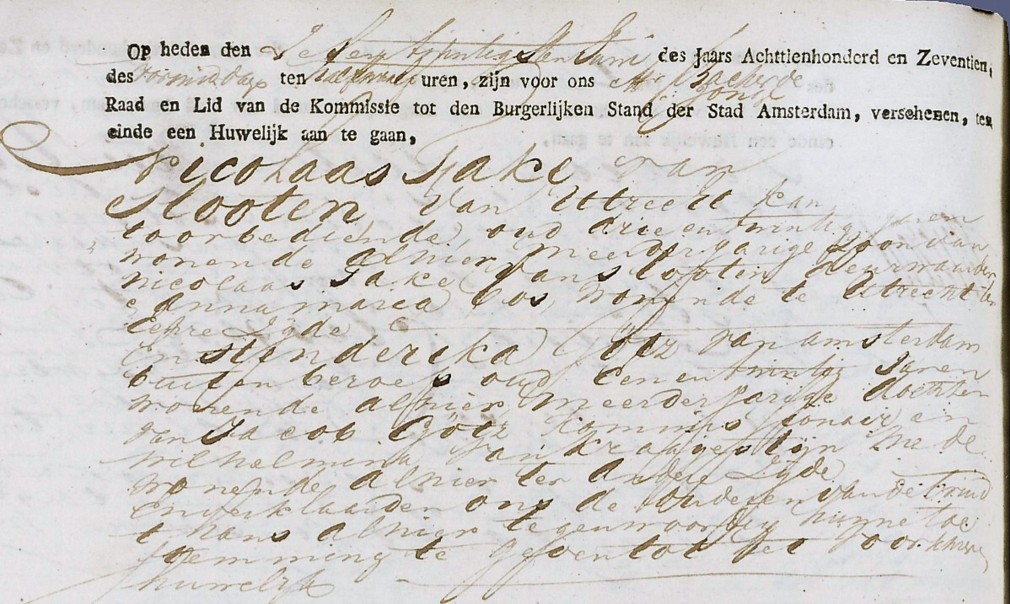 Op heden den Zes en twintigsten Juni des Jaars Achttienhonderd en Zeventien,
des voormiddags ten uren, zijn voor ons Mr.
Raad en Lid van de Kommissie tot den Burgerlijken Stand der Stad Amsterdam, verschenen, ten
einde een Huwelijk aan te gaan,
Nicolaas Jake van
Slooten van Utrecht kan
toorbediende, oud drie en twintig jaren
wonende alhier meerderjarige zoon van
Nicolaas Jake van Slooten deurwaarder
& Anna Maria Vos wonende te Utrecht ter
eenre zyde
En Henderika Götz van Amsterdam
buiten beroep oud een en twintig Jaren
wonende alhier, meerderjarige dochter
van Jacob Götz kommissionair en
Wilhelmina van mede
wonende alhier ter andere zyde
En verklaarden ons de ouderen van de Bruid
thans alhier tegenwoordig hunne toe
stemming te geeven tot het voorschreve
huwelyk